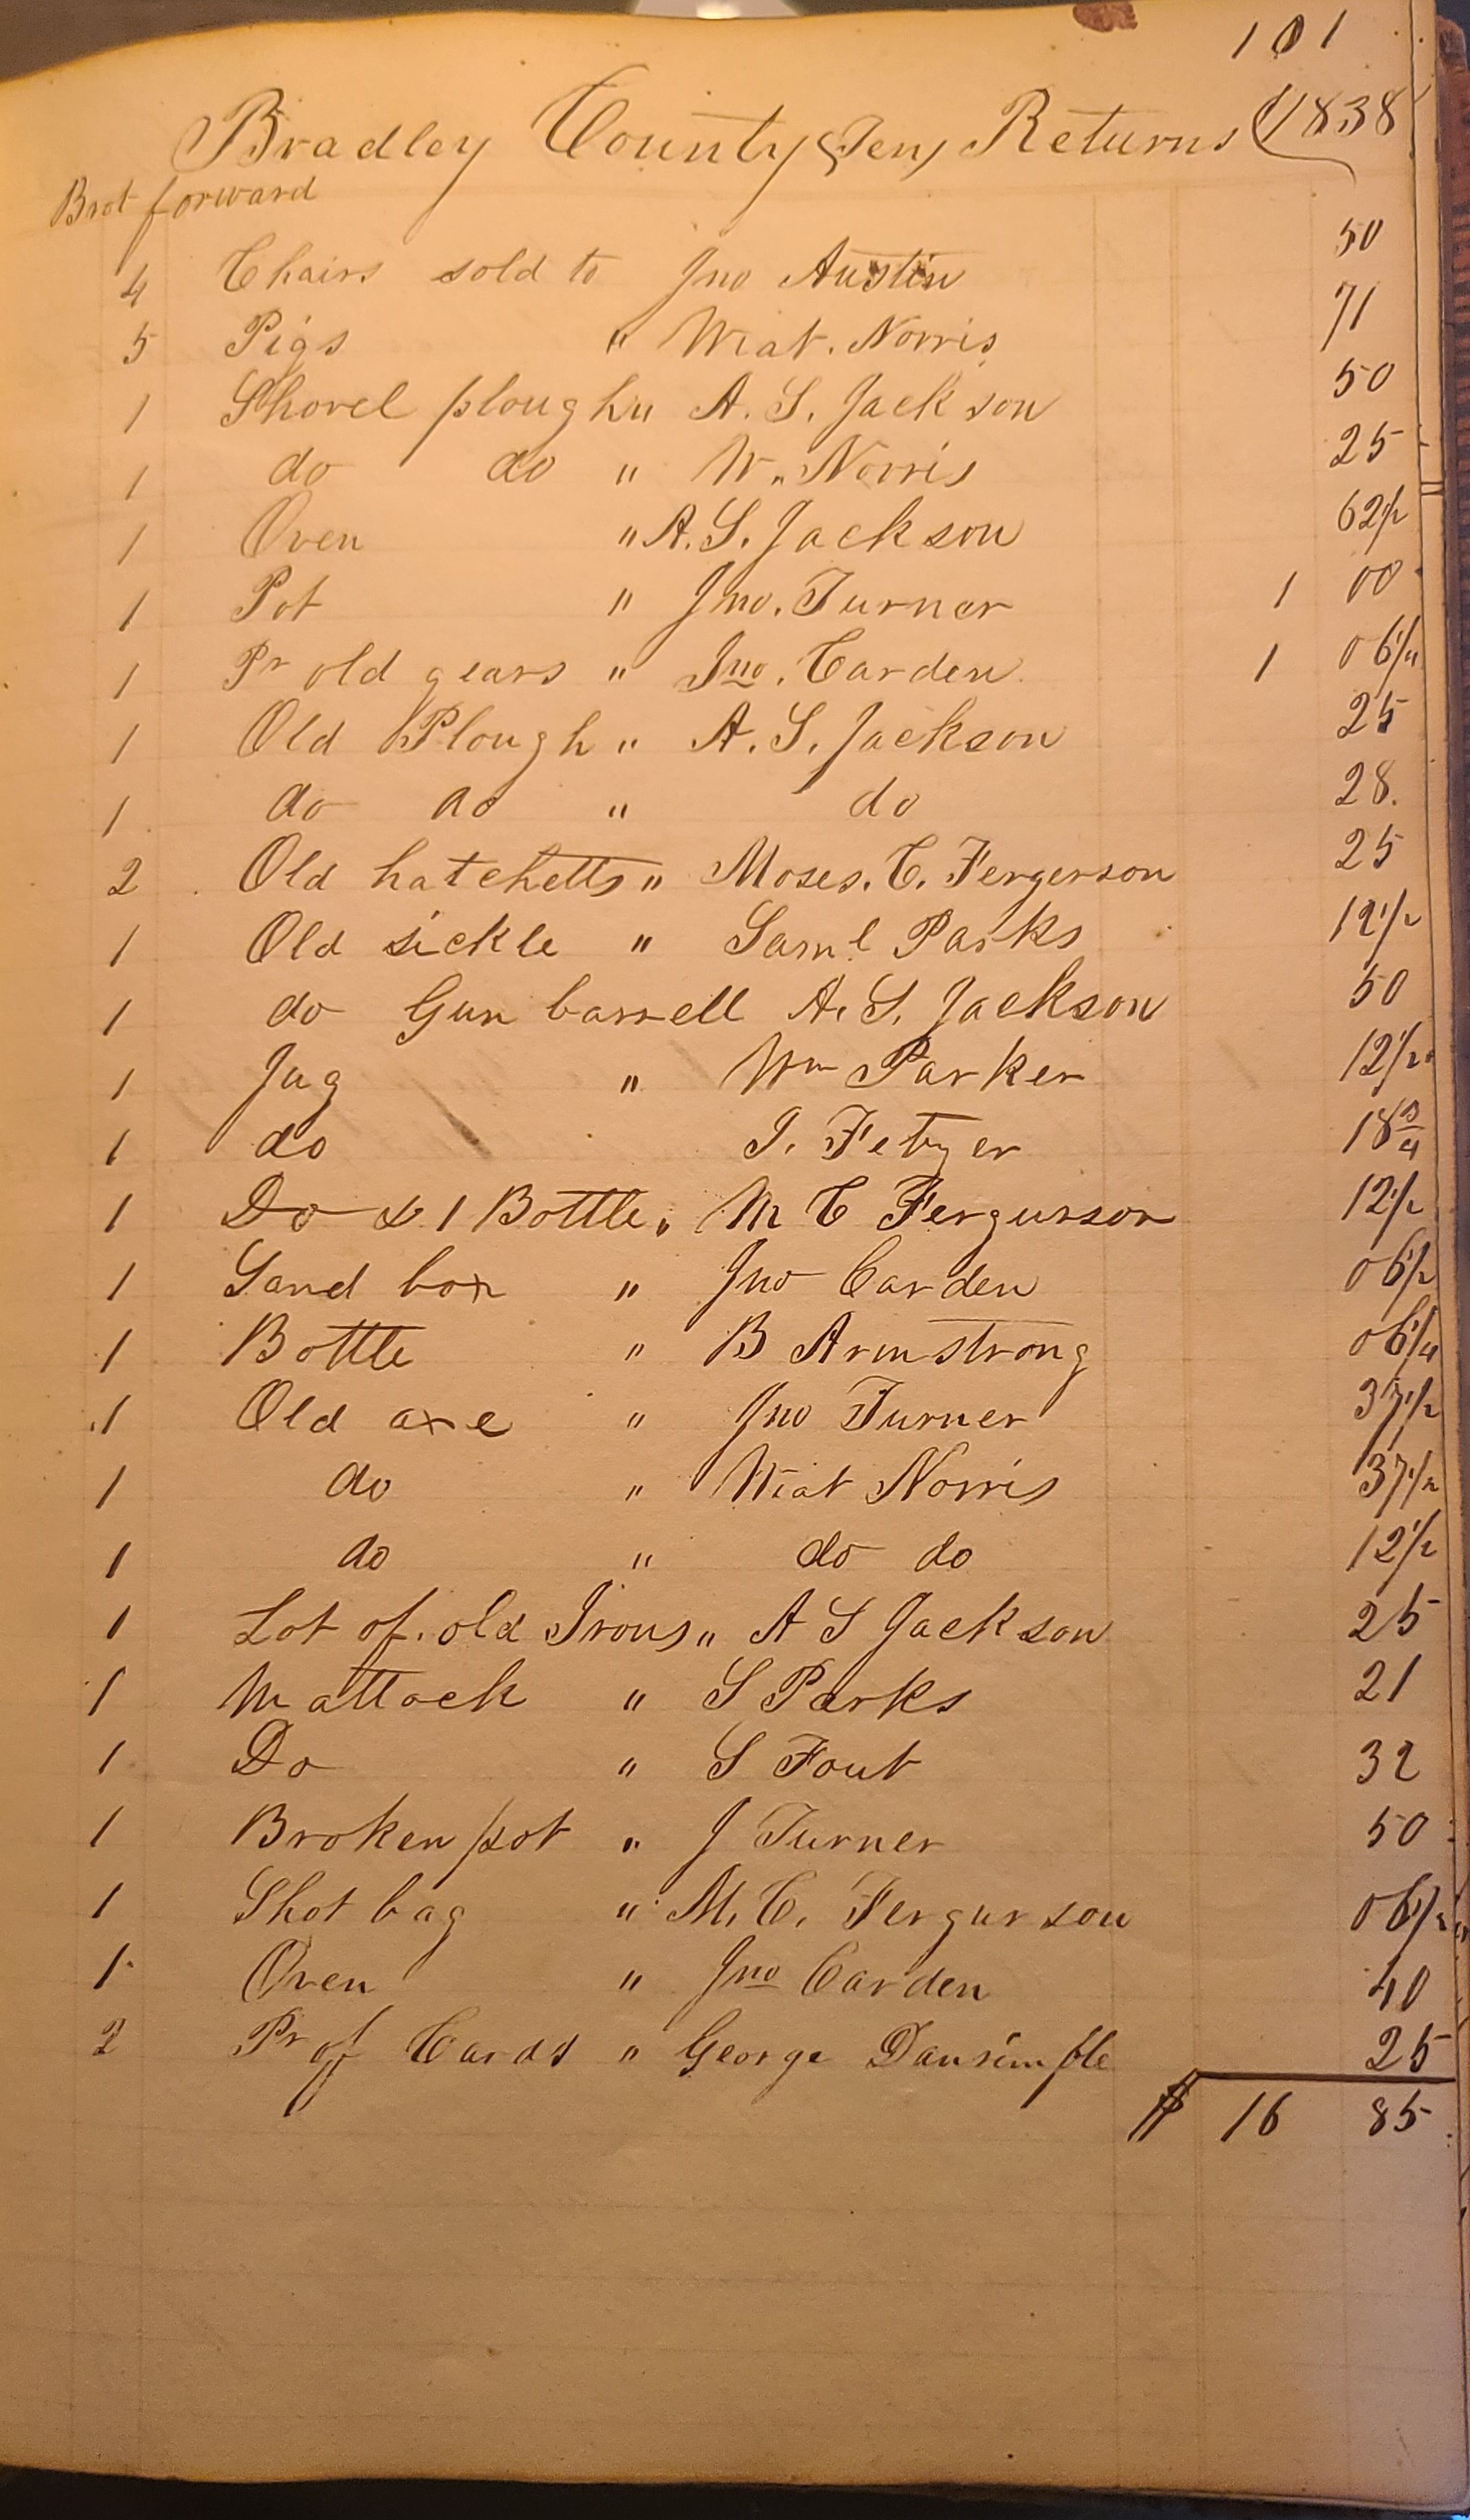 101
Bradley County (Ten) Returns 1838
Brot forward
4 Chairs sold to Jno Austin 50
5 Pigs " Wiat. Norris 71
1 Shovel plough " A. S. Jackson 50
1 do do " W. Norris 25
1 Oven " A. S. Jackson 62 1/2
1 Pot " Jno. Turner 1 00
1 Pr old gears " Jno. Carden 1 06 1/4
1 Old Plough " A. S. Jackson 25
1 do do " do 28
2 Old hatchetts " Moses. C. Fergerson 25
1 Old sickle " Saml Parks 12 1/2
1 do Gun barrell A. S. Jackson 50
1 Jug " Wm Parker 12 1/2
1 do J. Fetzer 18 3/4
1 Do & 1 Bottle " M C Fergurson 12 1/2
1 Sand box " Jno Carden 06 1/2
1 Bottle " B Armstrong 06 1/4
1 Old axe " Jno Turner 37 1/2
1 do " Wiat Norris 37 1/2
1 do " do do 12 1/2
1 Lot of old Irons " A S Jackson 25
1 Mattock " S Parks 21
1 Do " S Fout 32
1 Broken pot " J Turner 50
1 Shot bag " M. C. Fergurson 06
1 Oven " Jno Carden 40
2 Pr of Cards " George 25
$ 16 85